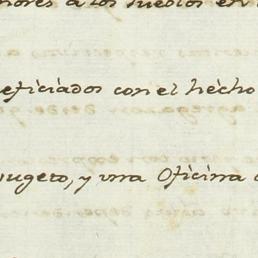 nores a los Pueblos en
eficiados con el hecho
ugero, y una Oficina